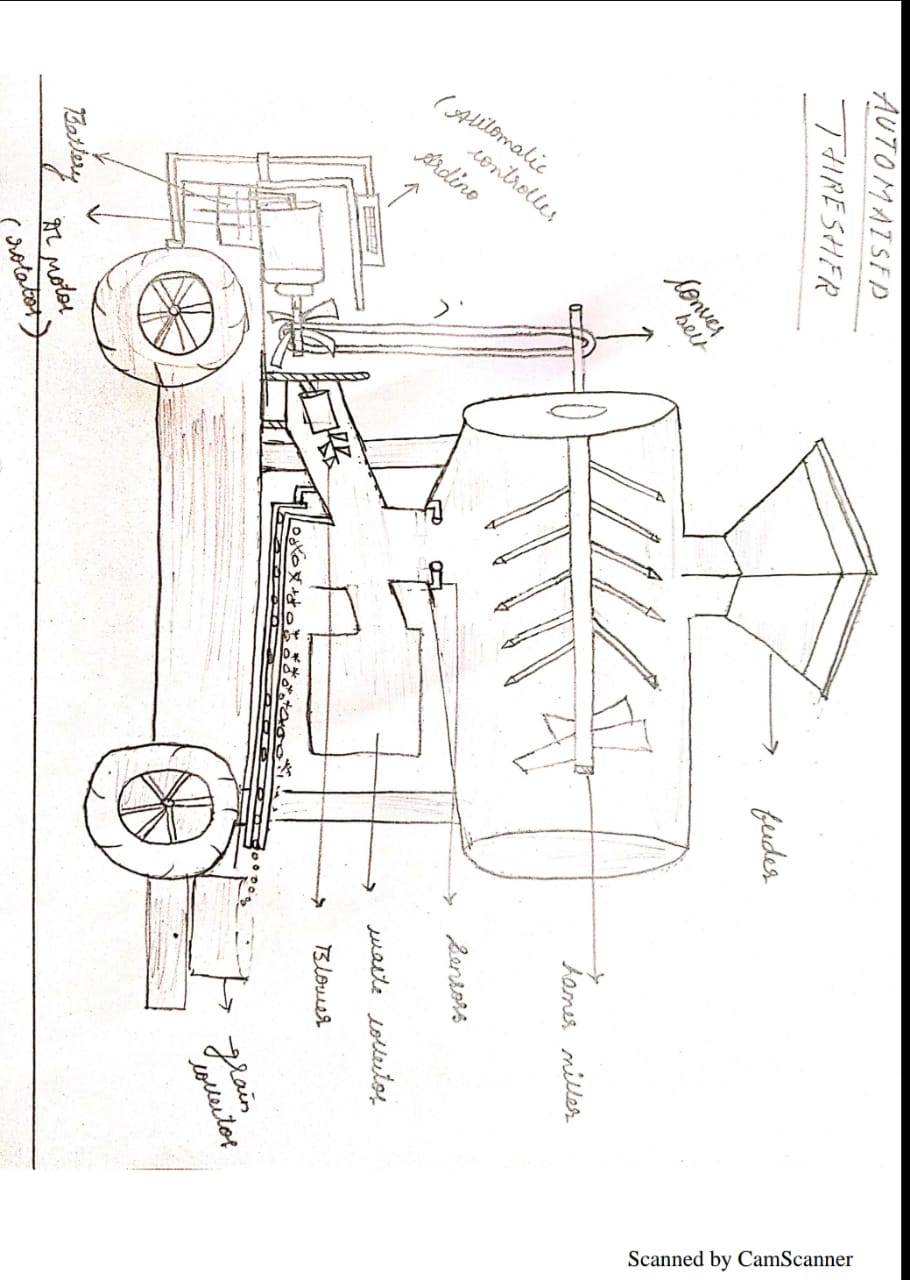 AUTOMATSED
THRESHER
feeder
Conver
belt
hamer miller
(Automatic
controller
Ardino
Sensors
waste collector
Blower
grain
collector
Battery
DC Motor
(rotator)
Scanned by CamScanner